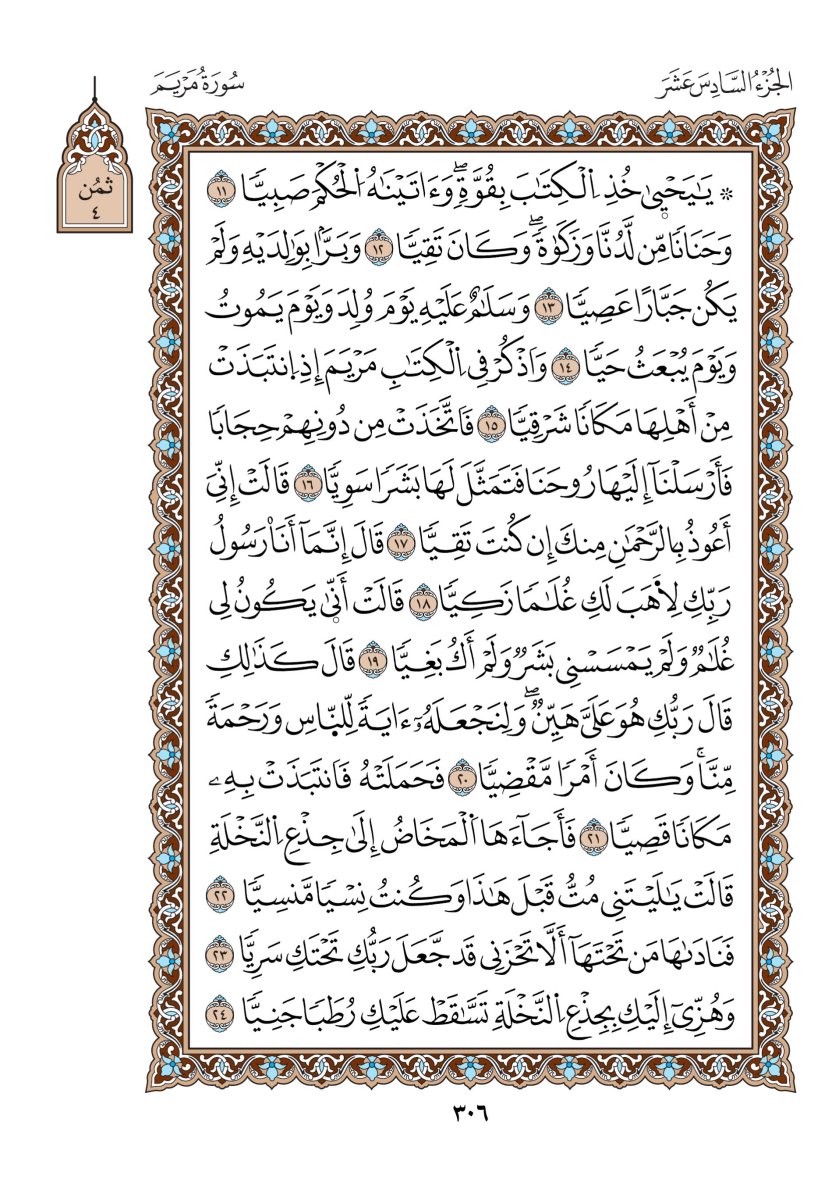 الجُزْءُ السَّادِسَ عَشَرَ
سُورَةُ مَرْيَمَ
ثمُن
٤
* يَٰيَحْيۭيٰ خُذِ اِ۬لْكِتَٰبَ بِقُوَّةٖۖ وَءَاتَيْنَٰهُ اُ۬لْحُكْمَ صَبِيّٗا ١١
وَحَنَانٗا مِّن لَّدُنَّا وَزَكَوٰةٗۖ وَكَانَ تَقِيّٗا ١٢ وَبَرَّۢا بِوَٰلِدَيْهِ وَلَمْ
يَكُن جَبَّارًا عَصِيّٗا ١٣ وَسَلَٰمٌ عَلَيْهِ يَوْمَ وُلِدَ وَيَوْمَ يَمُوتُ
وَيَوْمَ يُبْعَثُ حَيّٗا ١٤ وَاَذْكُرْ فِي اِ۬لْكِتَٰبِ مَرْيَمَ إِذِ اِ۪نتَبَذَتْ
مِنْ أَهْلِهَا مَكَانٗا شَرْقِيّٗا ١٥ فَاَتَّخَذَتْ مِن دُونِهِمْ حِجَابٗا
فَأَرْسَلْنَآ إِلَيْهَا رُوحَنَا فَتَمَثَّلَ لَهَا بَشَرٗا سَوِيّٗا ١٦ قَالَتْ إِنِّيَ
أَعُوذُ بِالرَّحْمَٰنِ مِنكَ إِن كُنتَ تَقِيّٗا ١٧ قَالَ إِنَّمَآ أَنَا۠ رَسُولُ
رَبِّكِ لِأَهَبَ لَكِ غُلَٰمٗا زَكِيّٗا ١٨ قَالَتْ أَنّۭيٰ يَكُونُ لِي
غُلَٰمٞ وَلَمْ يَمْسَسْنِي بَشَرٞ وَلَمْ أَكُ بَغِيّٗا ١٩ قَالَ كَذَٰلِكِ
قَالَ رَبُّكِ هُوَ عَلَيَّ هَيِّنٞۖ وَلِنَجْعَلَهُۥٓ ءَايَةٗ لِّلنَّاسِ وَرَحْمَةٗ
مِّنَّاۚ وَكَانَ أَمْرٗا مَّقْضِيّٗا ٢٠ فَحَمَلَتْهُ فَانتَبَذَتْ بِهِۦ
مَكَانٗا قَصِيّٗا ٢١ فَأَجَآءَهَا اَ۬لْمَخَاضُ إِلَىٰ جِذْعِ اِ۬لنَّخْلَةِ
قَالَتْ يَٰلَيْتَنِي مُتُّ قَبْلَ هَٰذَا وَكُنتُ نِسْيٗا مَّنسِيّٗا ٢٢
فَنَادَىٰهَا مَن تَحْتَهَآ أَلَّا تَحْزَنِي قَد جَّعَلَ رَبُّكِ تَحْتَكِ سَرِيّٗا ٢٣
وَهُزِّيٓ إِلَيْكِ بِجِذْعِ اِ۬لنَّخْلَةِ تَسَّٰقَطْ عَلَيْكِ رُطَبٗا جَنِيّٗا ٢٤
٣٠٦